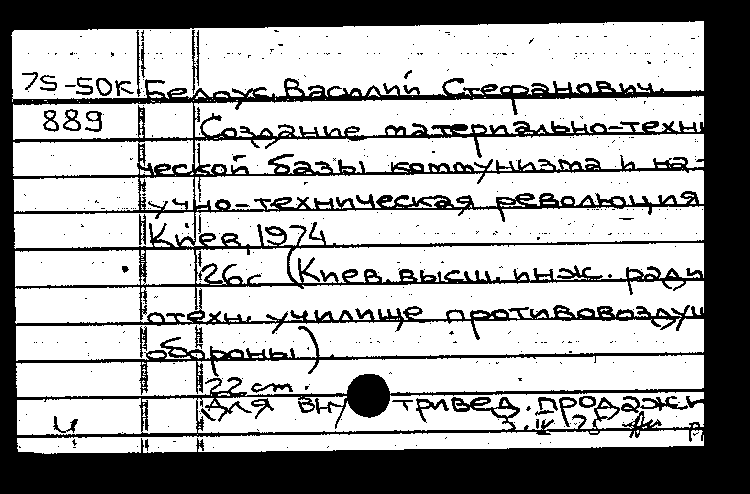 75-50К Белоус, Василий Стефанович.
889 Создание материально-техни
ческой базы коммунизма и на-
учно-техническая революция
Киев, 1974.
26с (Киев. высш. инж. ради
отехн. училище противовоздуш
обороны).
22 cm.
Для вн тривед. продажи
Ч 3. IV 75